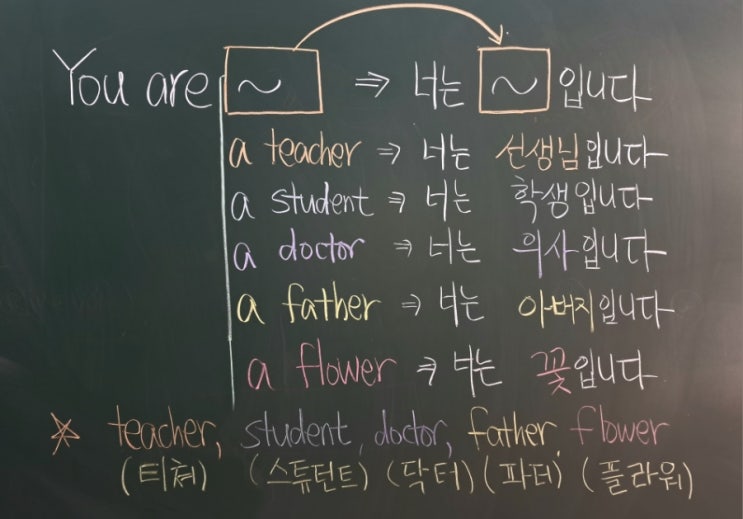 You are ~ ⇒ 너는 ~ 입니다
a teacher ⇒ 너는 선생님입니다
a student ⇒ 너는 학생입니다
a doctor ⇒ 너는 의사입니다
a father ⇒ 너는 아버지입니다
a flower ⇒ 너는 꽃입니다
* teacher, student, doctor, father, flower
(티쳐) (스튜던트) (닥터) (파더) (플라워)